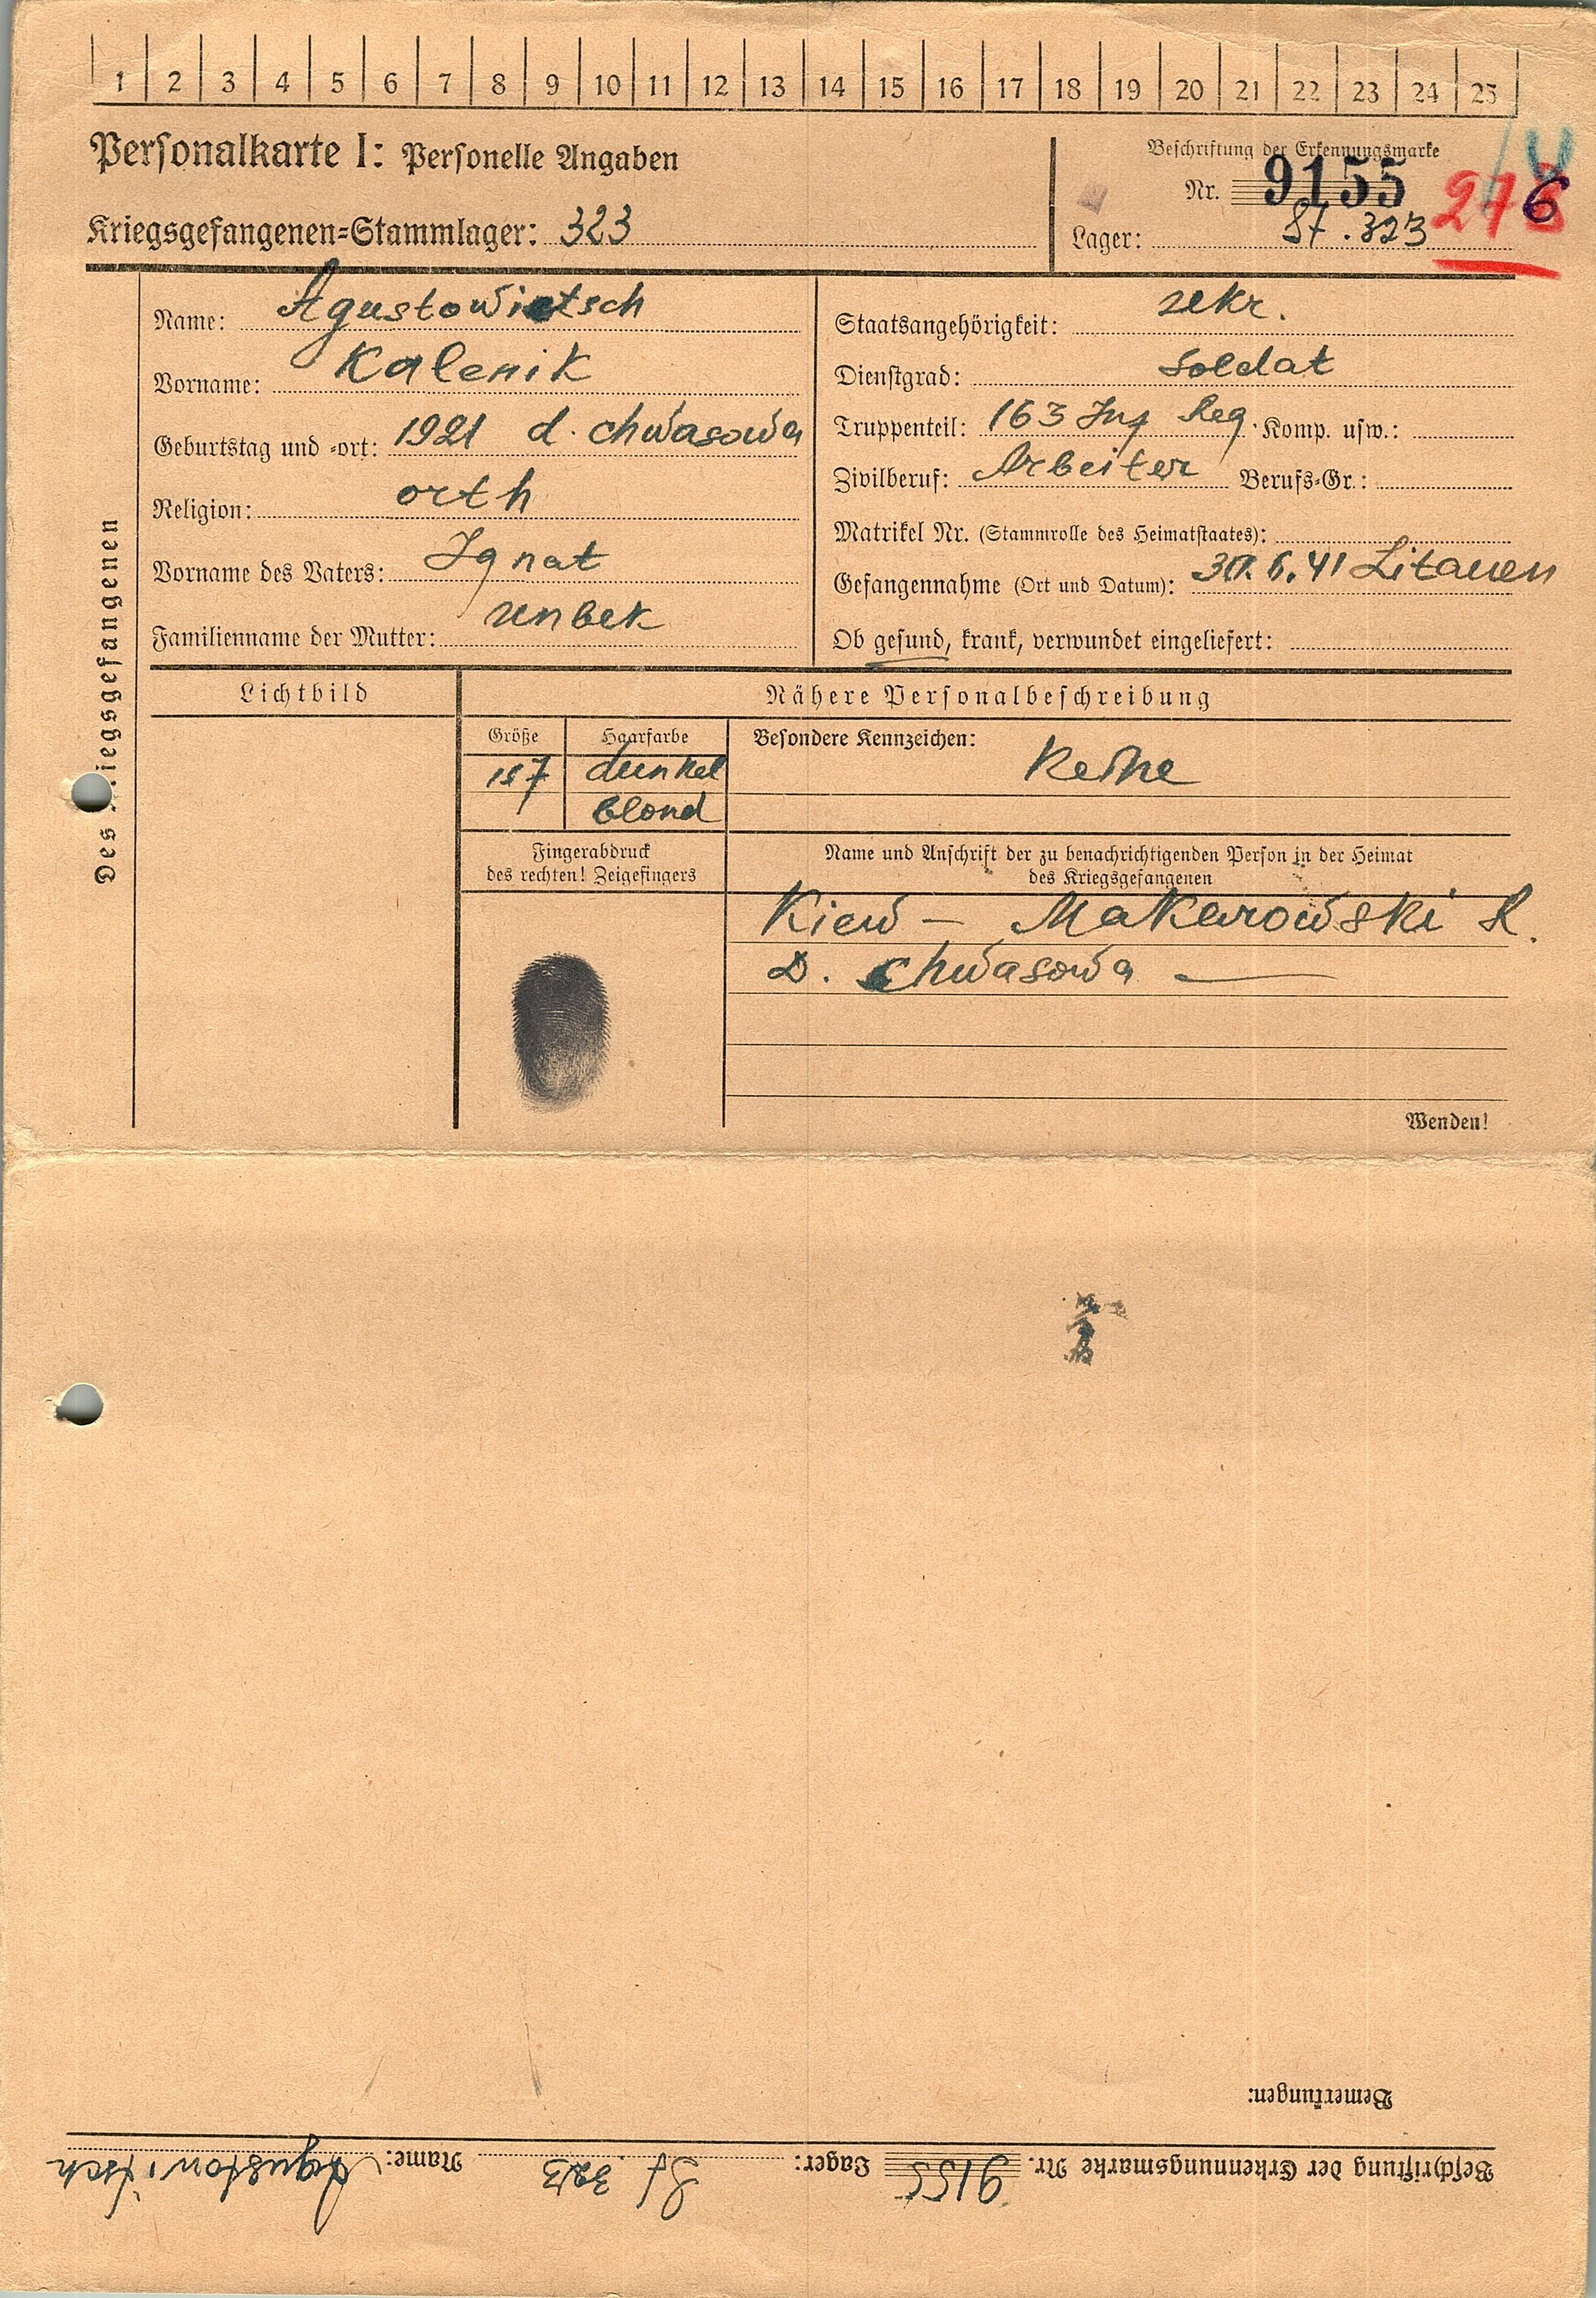 1 2 3 4 5 6 7 8 9 10 11 12 13 14 15 16 17 18 19 20 21 22 23 24 25
Personalkarte I: Personelle Angaben
Kriegsgefangenen-Stammlager: 323
Beschriftung der Erkennungsmarke
Nr. 9155
Lager: St. 323
6
Des Kriegsgefangenen
Name: Agustowietsch
Vorname: Kalenik
Geburtstag und -ort: 1921 d. Chwasowa
Religion: orth
Vorname des Vaters: Ignat
Familienname der Mutter:
Staatsangehörigkeit: ukr.
Dienstgrad: Soldat
Truppenteil: 163 Inf Reg. Komp. usw.:
Zivilberuf: Arbeiter Berufs-Gr.:
Matrikel Nr. (Stammrolle des Heimatstaates):
Gefangennahme (Ort und Datum): 30.6.41 Litauen
Ob gesund, krank, verwundet eingeliefert:
Lichtbild
Nähere Personalbeschreibung
Größe
Haarfarbe
Besondere Kennzeichen: Keine
157
dunkel
blond
Fingerabdruck
des rechten! Zeigefingers
Name und Anschrift der zu benachrichtigenden Person in der Heimat
des Kriegsgefangenen
Kiew – Makarowski R.
D. Chwasowa –
Wenden!
Bemerkungen:
Beschriftung der Erkennungsmarke Nr. 9155 Lager: St 323 Name: Agustowitsch